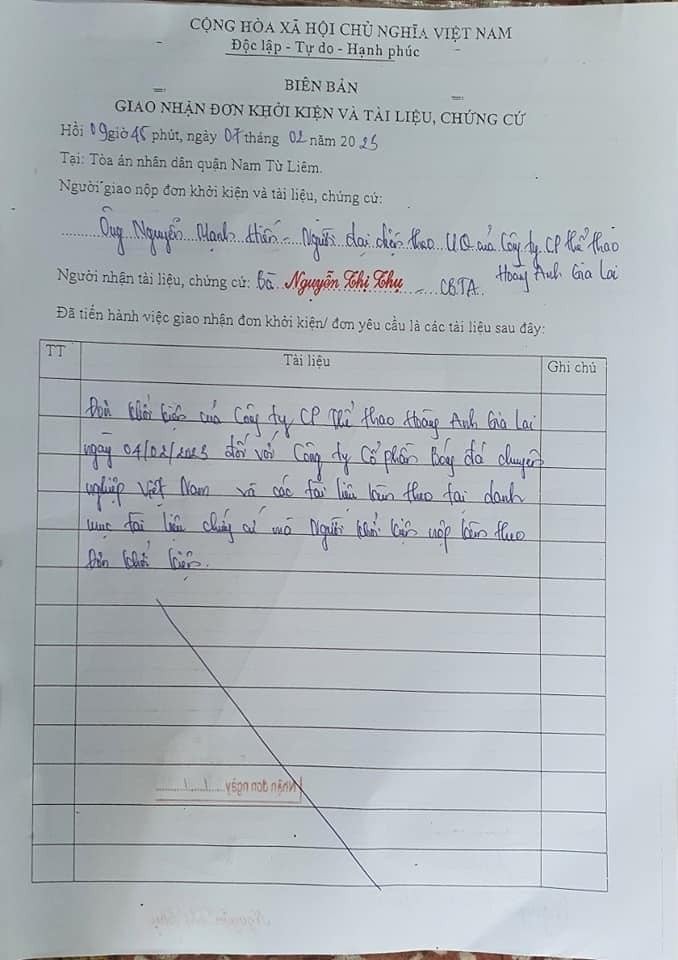 CỘNG HÒA XÃ HỘI CHỦ NGHĨA VIỆT NAM
Độc lập - Tự do - Hạnh phúc
BIÊN BẢN
GIAO NHẬN ĐƠN KHỞI KIỆN VÀ TÀI LIỆU, CHỨNG CỨ
Hồi 09 giờ 45 phút, ngày 07 tháng 02 năm 2023
Tại: Tòa án nhân dân quận Nam Từ Liêm.
Người giao nộp đơn khởi kiện và tài liệu, chứng cứ:
Ông Nguyễn Mạnh - Người đại diện theo UQ của Công ty CP Thể thao
Hoàng Anh Gia Lai
Người nhận tài liệu, chứng cứ: Bà Nguyễn Thị Thu - CBTA
Đã tiến hành việc giao nhận đơn khởi kiện/ đơn yêu cầu là các tài liệu sau đây:
TT Tài liệu Ghi chú
Đơn khởi kiện của Công ty CP Thể thao Hoàng Anh Gia Lai
ngày 04/02/2023 đối với Công ty Cổ phần Bóng đá chuyên
nghiệp Việt Nam và các tài liệu kèm theo tại danh
mục tài liệu chứng cứ mà Người khởi kiện nộp kèm theo
Đơn khởi kiện.
Nhận đơn ngày...../...../.....